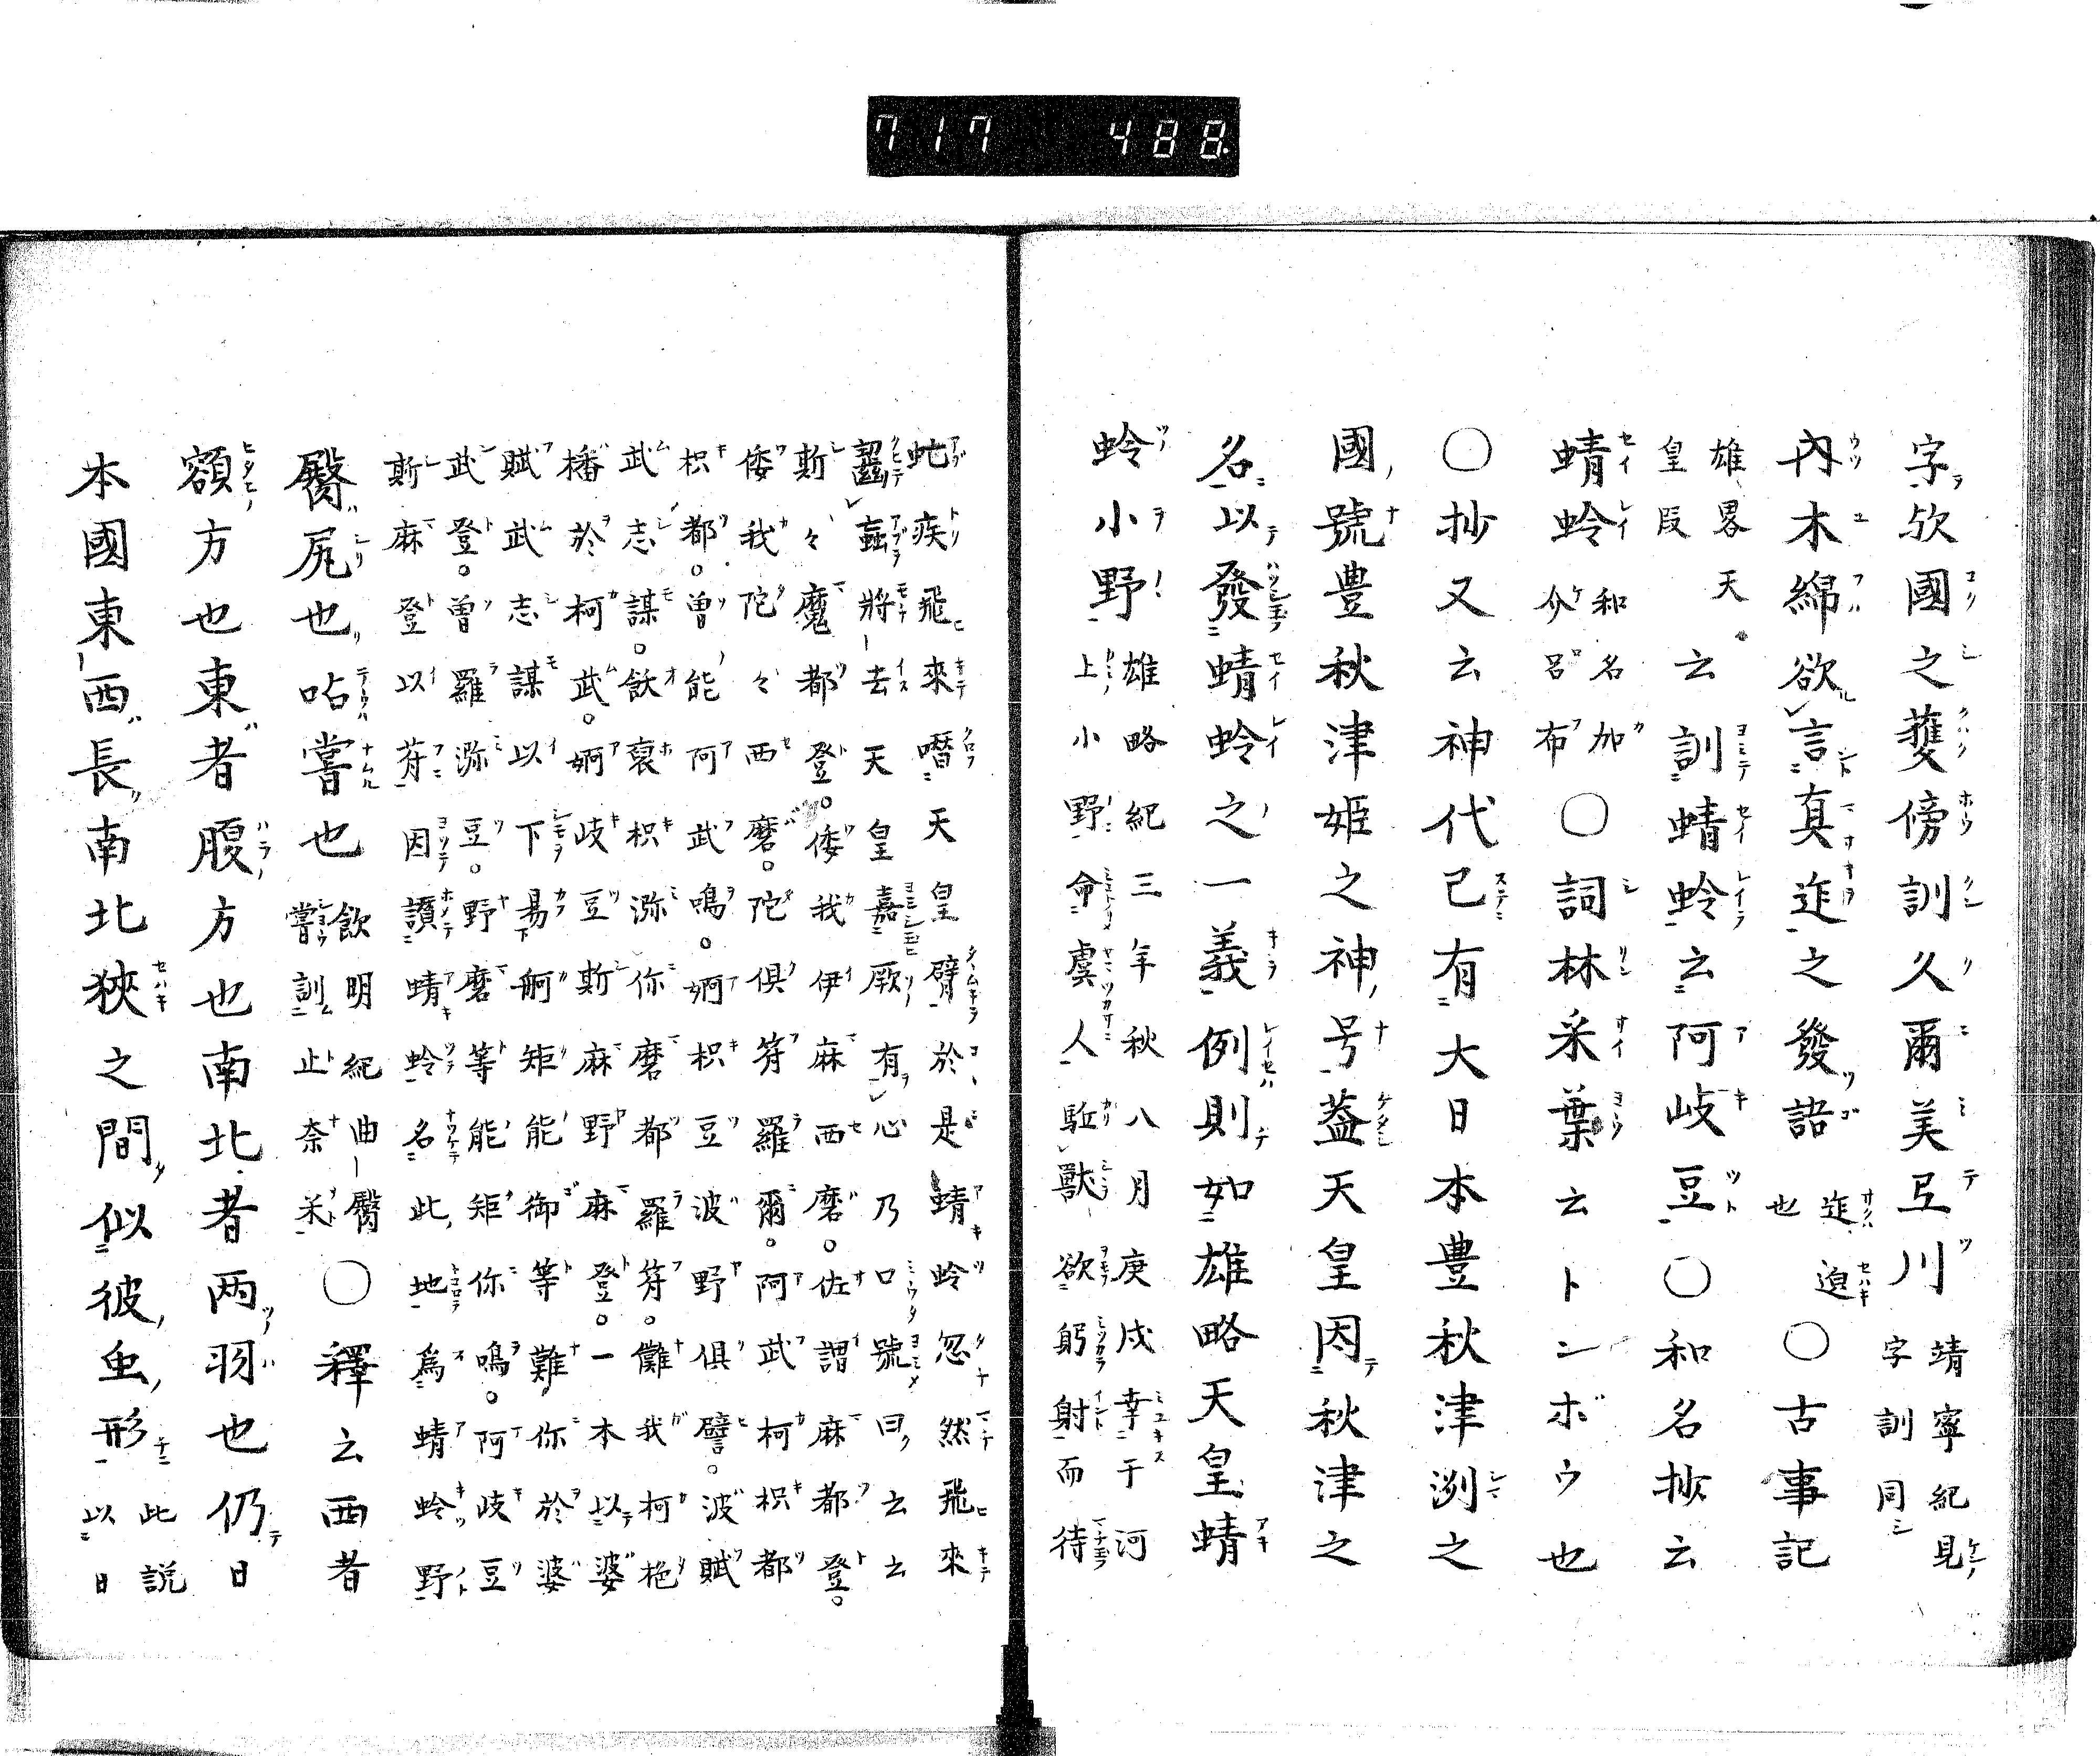 717 488
字欤國之蔓傍訓久爾美弖川靖寧紀見
字訓同
内木綿欲言真迮之發語迮迫
也○古事記
雄畧天
皇段云訓蜻蛉云阿岐豆○和名抄云
蜻蛉和名加
介呂布○詞林采葉云トンボウ也
○抄又云神代已有大日本豊秋津洲之
國號豊秋津姫之神号葢天皇因秋津之
名以發蜻蛉之一義例則如雄略天皇蜻
蛉小野雄略紀三年秋八月庚戌幸于河
上小野命虞人駈獸欲躬射而待
虻疾飛來噆天皇臂於是蜻蛉忽然飛來
齧蝱將去天皇嘉厥有心乃口號曰云云
斯々魔都登倭我伊麻西磨佐謂麻都登
倭我陀々西磨陀倶符羅爾阿武柯枳都
枳都曽能阿武鳴婀枳豆波野倶譬波賦
武志謀飫裒枳瀰你磨都羅符儺我柯柂
播於柯武婀岐豆斯麻野麻登一本以婆
賦武志謀以下易舸矩能御等難你於婆
武登曽羅瀰豆野磨等能矩你鳴阿岐豆
斯麻登以符因讃蜻蛉名此地爲蜻蛉野
臋尻也呫嘗也飲明紀曲臋
嘗訓止奈米○釋云西者
額方也東者腹方也南北者两羽也仍日
本國東西長南北狹之間似彼虫形此説
以日